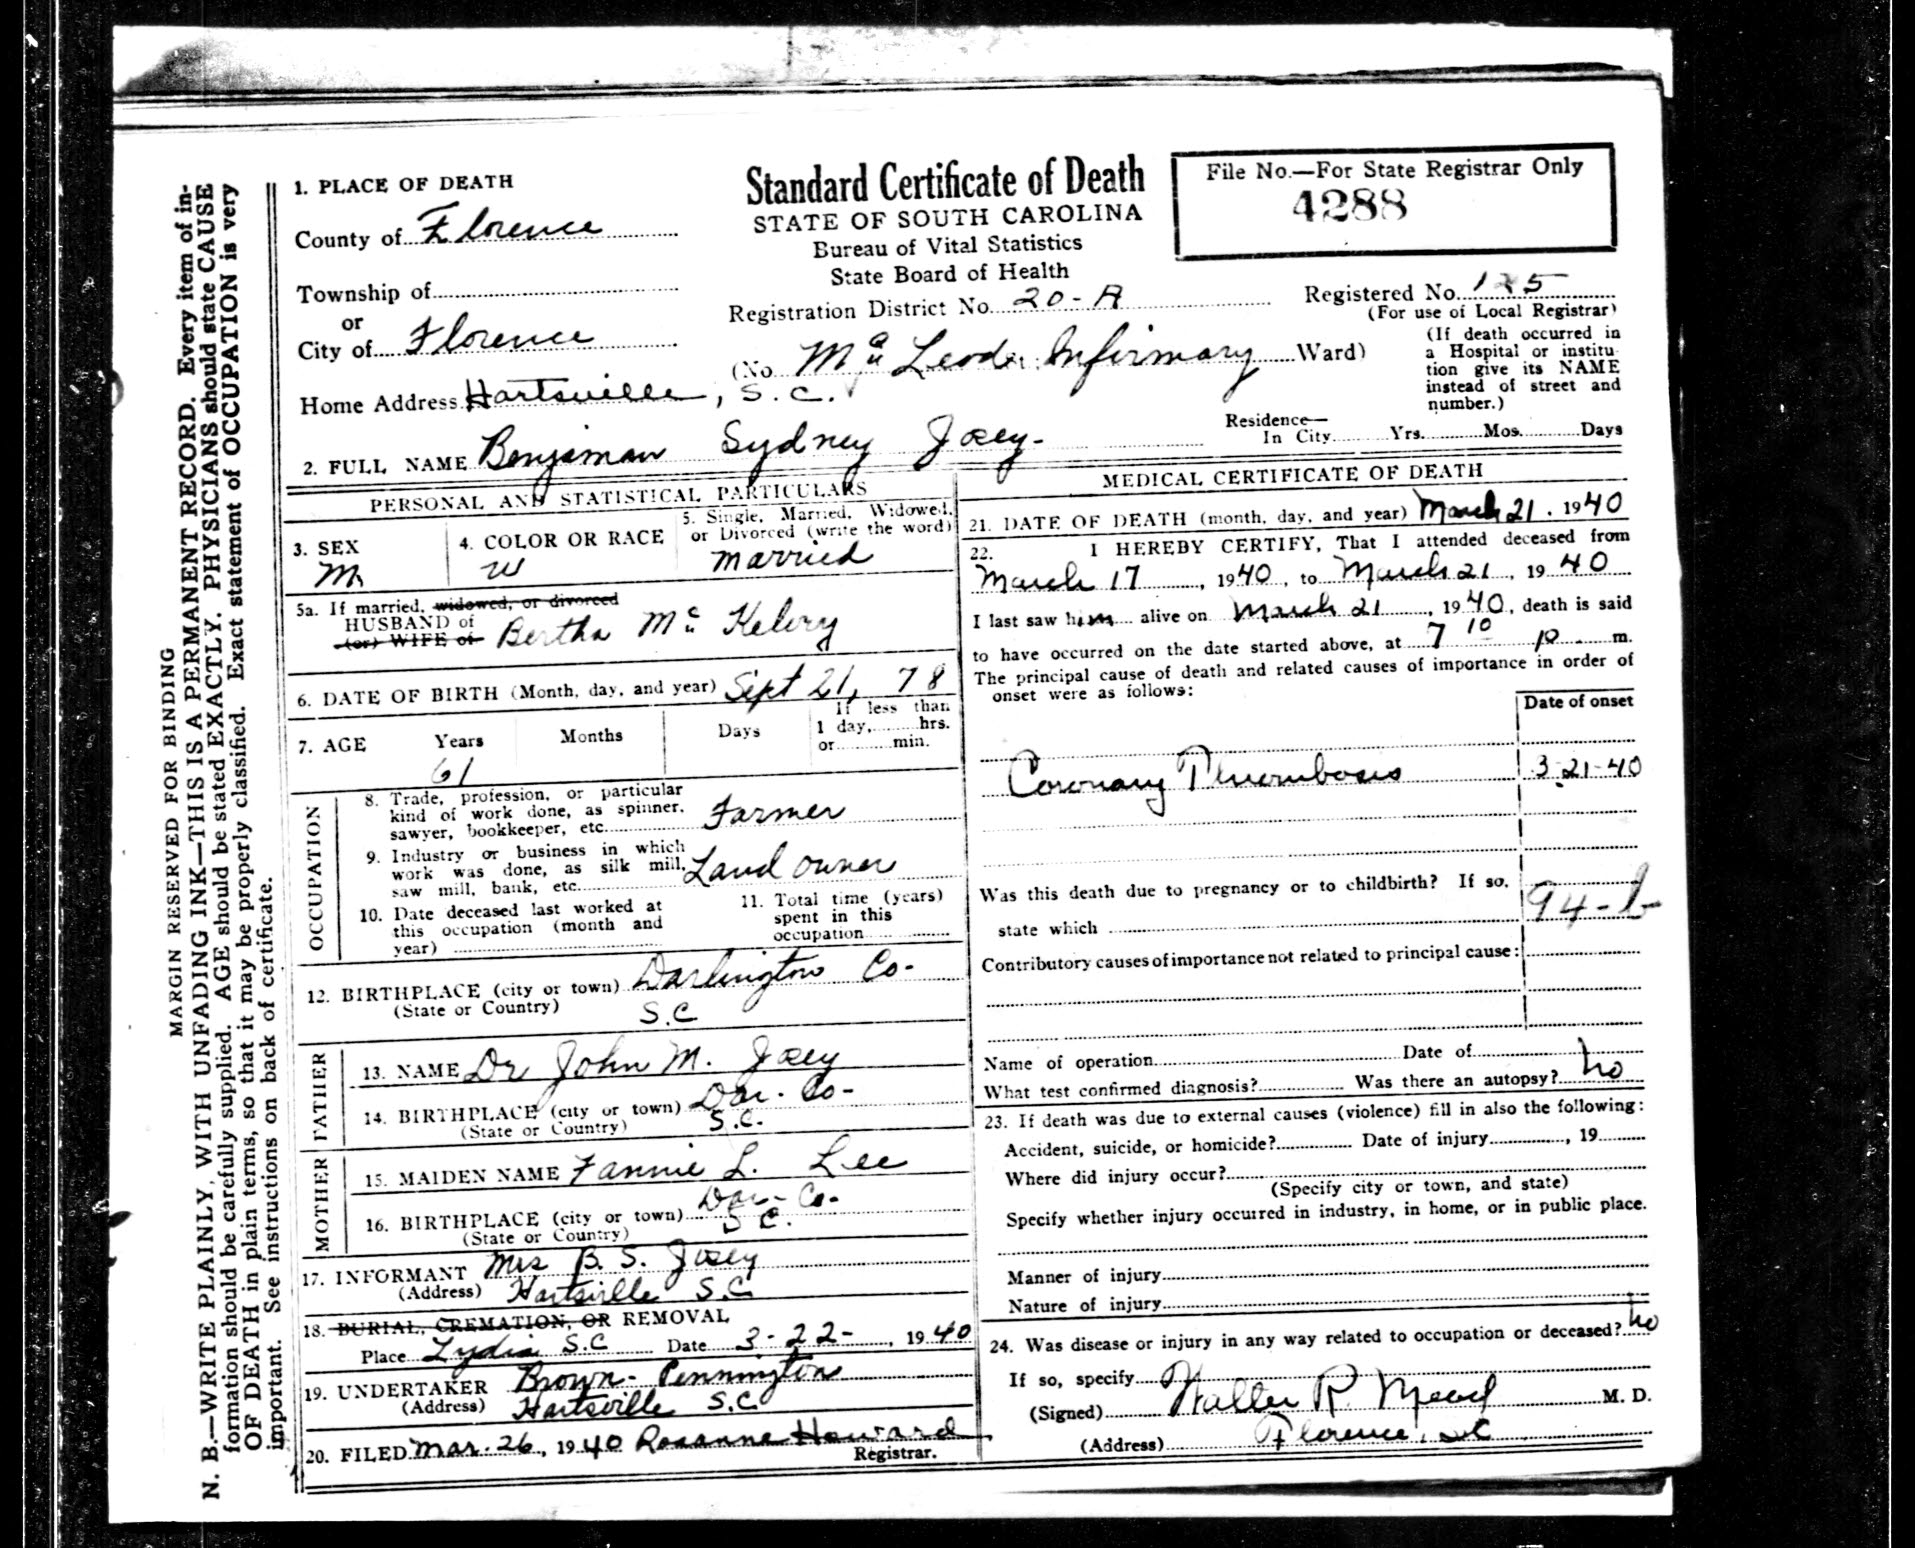 MARGIN RESERVED FOR BINDING
N. B.—WRITE PLAINLY, WITH UNFADING INK—THIS IS A PERMANENT RECORD. Every item of in-
formation should be carefully supplied. AGE should be stated EXACTLY. PHYSICIANS should state CAUSE
OF DEATH in plain terms, so that it may be properly classified. Exact statement of OCCUPATION is very
important. See instructions on back of certificate.
Standard Certificate of Death
STATE OF SOUTH CAROLINA
Bureau of Vital Statistics
State Board of Health
File No.—For State Registrar Only
4288
1. PLACE OF DEATH
County of Florence
Township of
or
City of Florence
Registration District No. 20-A
Registered No. 125
(For use of Local Registrar)
(No. Mc Leod Infirmary Ward)
(If death occurred in
a Hospital or institu-
tion give its NAME
instead of street and
number.)
Home Address Hartsville, S. C.
Residence—
In City Yrs. Mos. Days
2. FULL NAME Benjaman Sydney Josey
PERSONAL AND STATISTICAL PARTICULARS
3. SEX
M
4. COLOR OR RACE
W
5. Single, Married, Widowed,
or Divorced (write the word)
married
5a. If married, widowed, or divorced
HUSBAND of
(or) WIFE of Bertha Mc Kelvey
6. DATE OF BIRTH (Month, day, and year) Sept 21, 78
7. AGE Years Months Days
If less than
1 day, hrs.
or min.
61
OCCUPATION
8. Trade, profession, or particular
kind of work done, as spinner,
sawyer, bookkeeper, etc. Farmer
9. Industry or business in which
work was done, as silk mill,
saw mill, bank, etc. Land owner
10. Date deceased last worked at
this occupation (month and
year)
11. Total time (years)
spent in this
occupation
12. BIRTHPLACE (city or town) Darlington Co-
(State or Country) S.C
FATHER
13. NAME Dr John M. Josey
14. BIRTHPLACE (city or town) Dar. Co-
(State or Country) S.C.
MOTHER
15. MAIDEN NAME Fannie L. Lee
16. BIRTHPLACE (city or town) Dar- Co-
(State or Country) S C.
17. INFORMANT Mrs B. S. Josey
(Address) Hartsville S.C
18. BURIAL, CREMATION, OR REMOVAL
Place Lydia S.C Date 3-22-, 1940
19. UNDERTAKER Brown-Pennington
(Address) Hartsville S.C
20. FILED Mar. 26, 1940 Rosanne Howard
Registrar.
MEDICAL CERTIFICATE OF DEATH
21. DATE OF DEATH (month, day, and year) March 21. 1940
22. I HEREBY CERTIFY, That I attended deceased from
March 17, 1940, to March 21, 1940
I last saw him alive on March 21, 1940, death is said
to have occurred on the date started above, at 7 10 p m.
The principal cause of death and related causes of importance in order of
onset were as follows:
Date of onset
Coronary Thrombosis 3-21-40
Was this death due to pregnancy or to childbirth? If so,
state which
94-b
Contributory causes of importance not related to principal cause:
Name of operation Date of
What test confirmed diagnosis? Was there an autopsy? no
23. If death was due to external causes (violence) fill in also the following:
Accident, suicide, or homicide? Date of injury, 19
Where did injury occur?
(Specify city or town, and state)
Specify whether injury occurred in industry, in home, or in public place.
Manner of injury
Nature of injury
24. Was disease or injury in any way related to occupation or deceased? no
If so, specify
(Signed) Walter R. Mead M. D.
(Address) Florence, SC